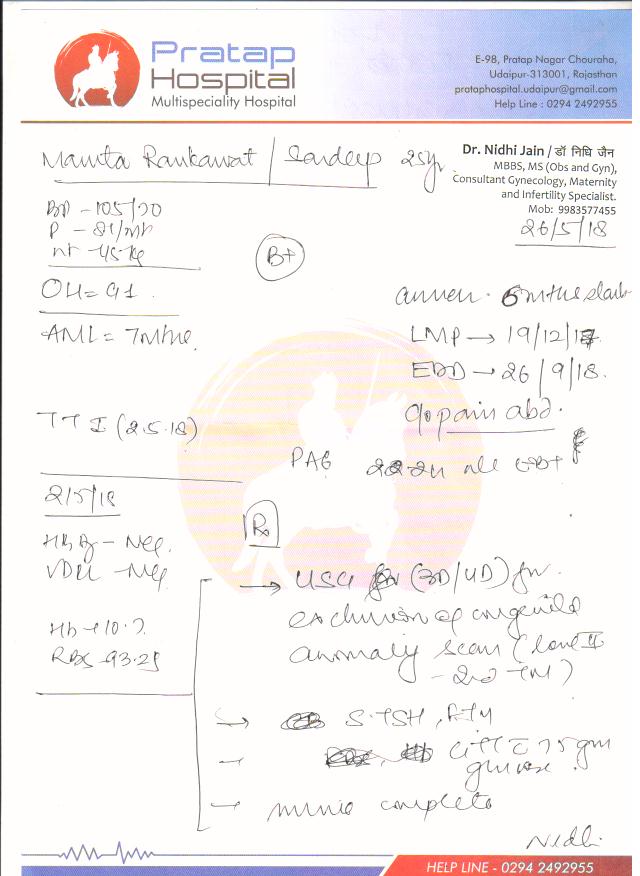 Pratap
Hospital
Multispeciality Hospital
E-98, Pratap Nagar Chouraha,
Udaipur-313001, Rajasthan
prataphospital.udaipur@gmail.com
Help Line : 0294 2492955
Dr. Nidhi Jain / डॉ निधि जैन
MBBS, MS (Obs and Gyn),
Consultant Gynecology, Maternity
and Infertility Specialist.
Mob: 9983577455
Mamta Rankawat / Sandeep 25yr
26/5/18
BP - 105/70
P - 81/mt
wt - 45 kg
B+
OH = G1
AML = 7 mths.
LMP → 19/12/17
EDD → 26/9/18.
c/o pain abd.
TT I (2.5.18)
P/A 22-24
2/5/18
HBsAg - Neg.
VDRL - Neg
Hb - 10.7
RBS - 93.25
Rx
→ USG (3D/4D) for
exclusion of congenital
anomaly scan (level II
→ S.TSH,
→ GTT c 75 gm
glucose.
→ urine complete
Nidhi
HELP LINE - 0294 2492955